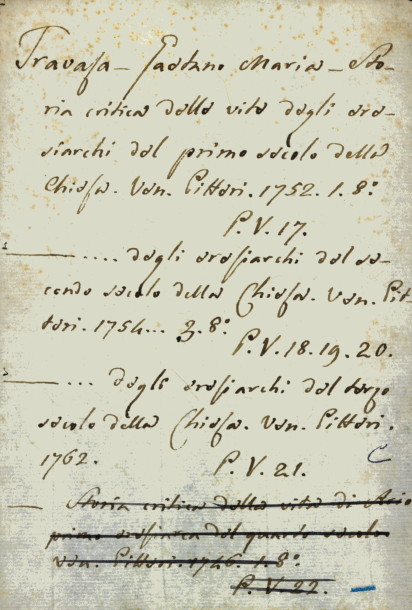 Travasa - Gaetano Maria - Sto-
ria critica delle vite degli ere-
siarchi del primo secolo della
Chiesa. Ven. Pitteri. 1752. 1. 8.º
P. V. 17.
— .... degli eresiarchi del se-
condo secolo della Chiesa. Ven. Pit-
teri. 1754... 3. 8.º
P. V. 18. 19. 20.
— ... degli eresiarchi del terzo
secolo della Chiesa. Ven. Pitteri.
1762. C
P. V. 21.
— Storia critica della vita di Ario
primo eresiarca del quarto secolo
Ven. Pitteri. 1746. 1. 8.º
P. V. 22.